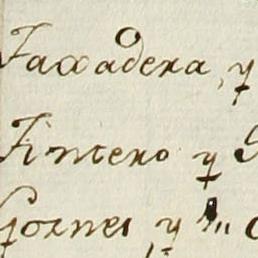 Taxadera, y
Tintero y
Tornes, y